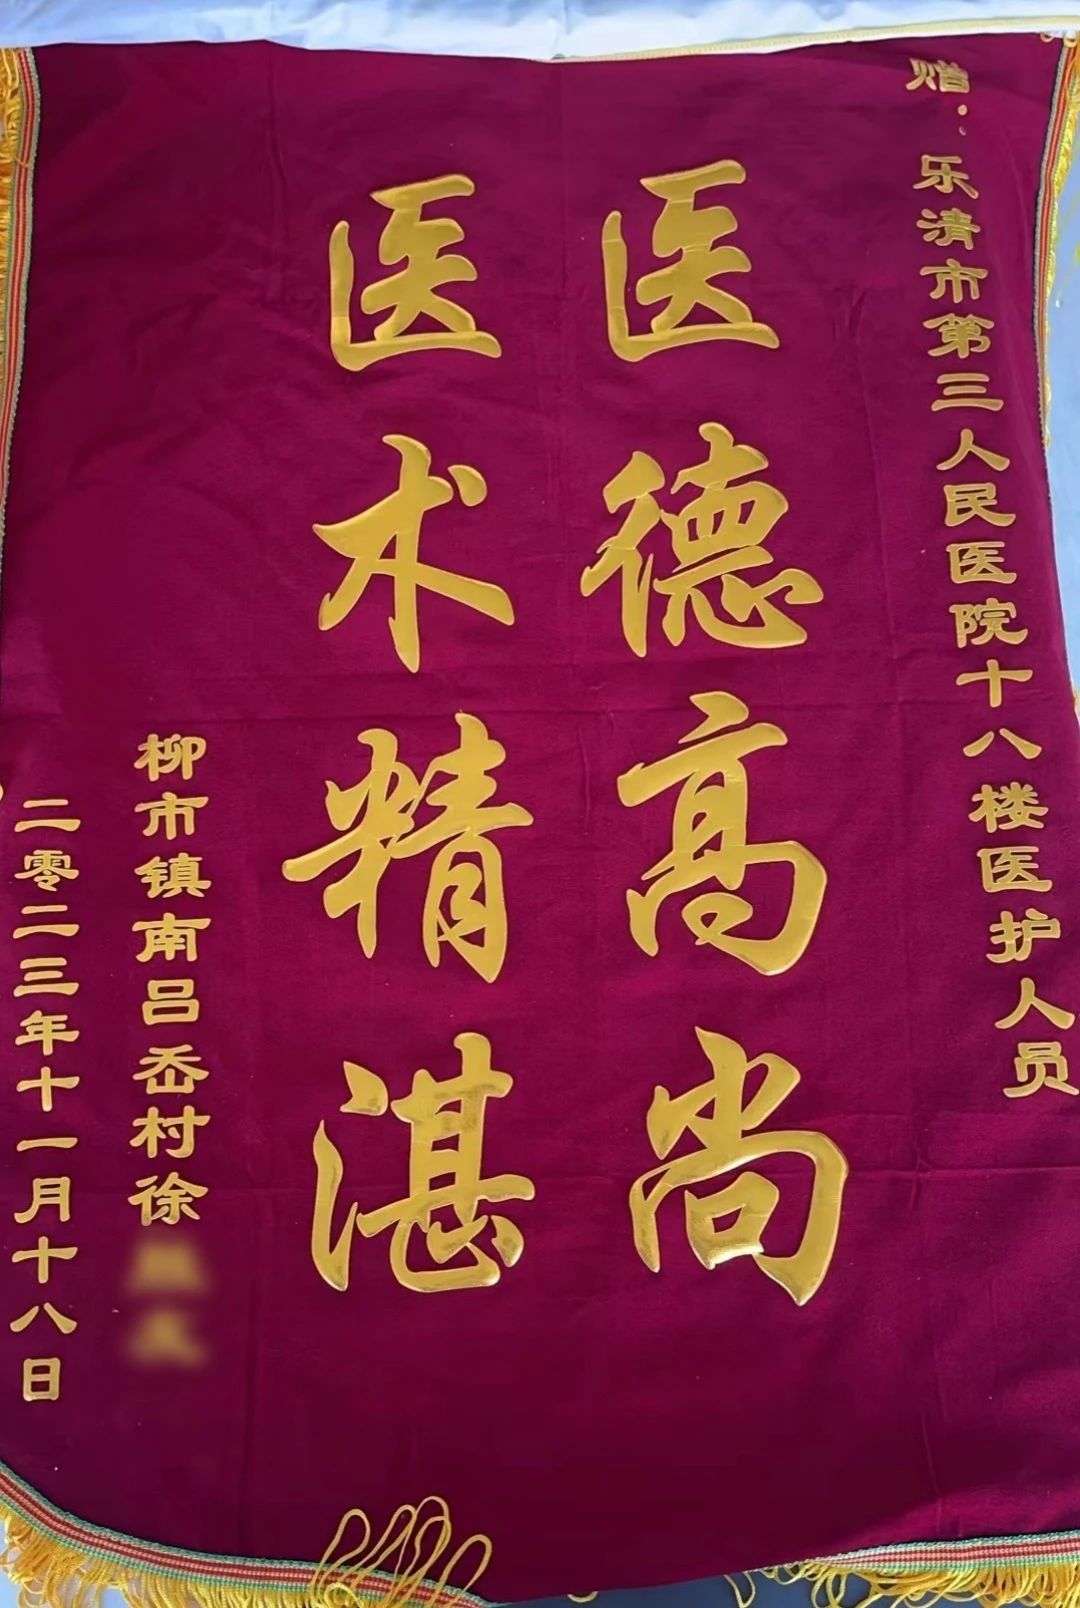 赠：乐清市第三人民医院十八楼医护人员
医德高尚
医术精湛
柳市镇南吕岙村徐
二零二三年十一月十八日